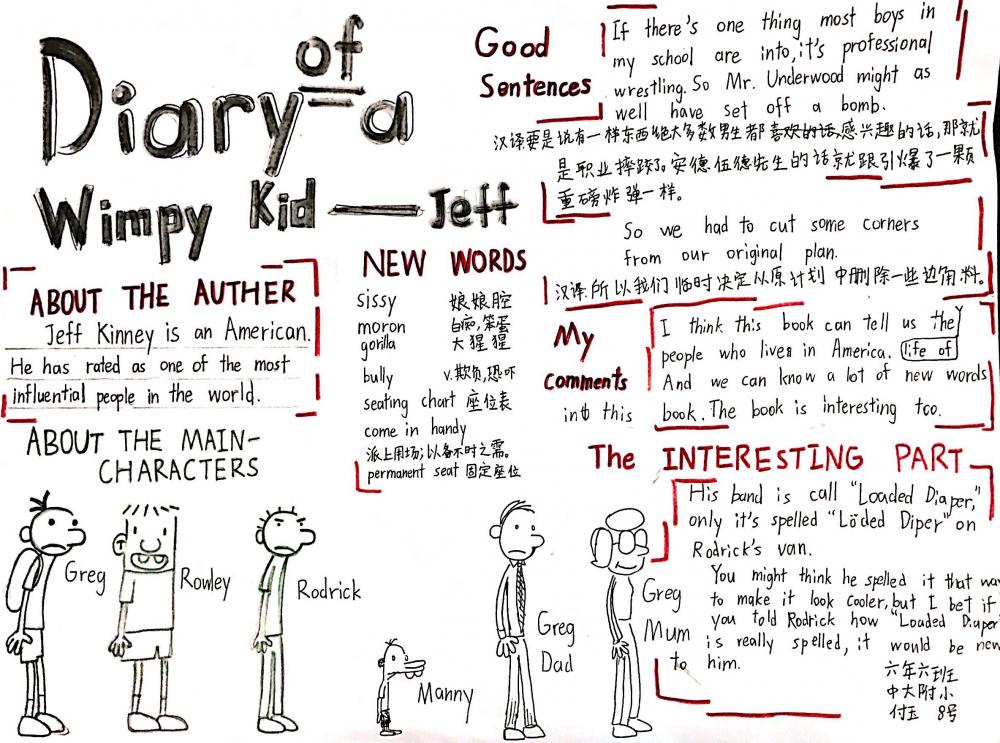 Diary of a
Wimpy Kid — Jeff
ABOUT THE AUTHER
Jeff Kinney is an American.
He has rated as one of the most
influential people in the world.
ABOUT THE MAIN-
CHARACTERS
Greg
Rowley
Rodrick
Manny
Greg
Dad
Greg
Mum
NEW WORDS
sissy 娘娘腔
moron 白痴,笨蛋
gorilla 大猩猩
bully v.欺负,恐吓
seating chart 座位表
come in handy
派上用场;以备不时之需。
permanent seat 固定座位
Good
Sentences
If there's one thing most boys in
my school are into, it's professional
wrestling. So Mr. Underwood might as
well have set off a bomb.
汉译要是说有一样东西绝大多数男生都喜欢的话,感兴趣的话,那就
是职业摔跤了。安德伍德先生的话就跟引爆了一颗
重磅炸弹一样。
So we had to cut some corners
from our original plan.
汉译:所以我们临时决定从原计划中删除一些边角料。
My
Comments
I think this book can tell us the
people who lives in America. life of
And we can know a lot of new words
into this book. The book is interesting too.
The INTERESTING PART
His band is call "Loaded Diaper,"
only it's spelled "Löded Diper" on
Rodrick's van.
You might think he spelled it that way
to make it look cooler, but I bet if
you told Rodrick how "Loaded Diaper"
is really spelled, it would be new
to him.
六年六班
中大附小
付玉 8号